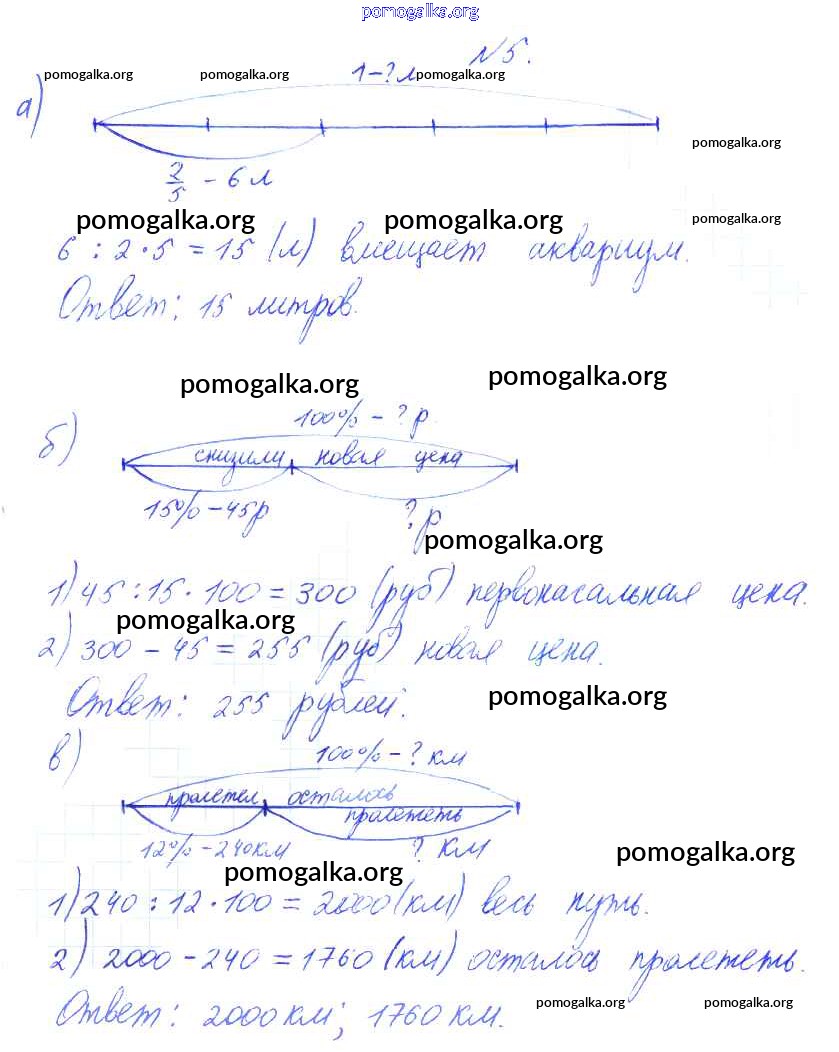 pomogalka.org
№5.
pomogalka.org pomogalka.org pomogalka.org
1-?л
а)
pomogalka.org
2/5 - 6 л
pomogalka.org pomogalka.org pomogalka.org
6 : 2 · 5 = 15 (л) вмещает аквариум.
Ответ: 15 литров.
pomogalka.org pomogalka.org
100% - ? р.
б)
снизили новая цена
15% - 45р ? р
pomogalka.org
1) 45 : 15 · 100 = 300 (руб) первоначальная цена.
pomogalka.org
2) 300 - 45 = 255 (руб) новая цена.
Ответ: 255 рублей.
pomogalka.org
в)
100% - ? км
пролетел осталось
пролететь
12% - 240км ? км
pomogalka.org pomogalka.org
1) 240 : 12 · 100 = 2000 (км) весь путь.
2) 2000 - 240 = 1760 (км) осталось пролететь.
pomogalka.org pomogalka.org
Ответ: 2000 км; 1760 км.